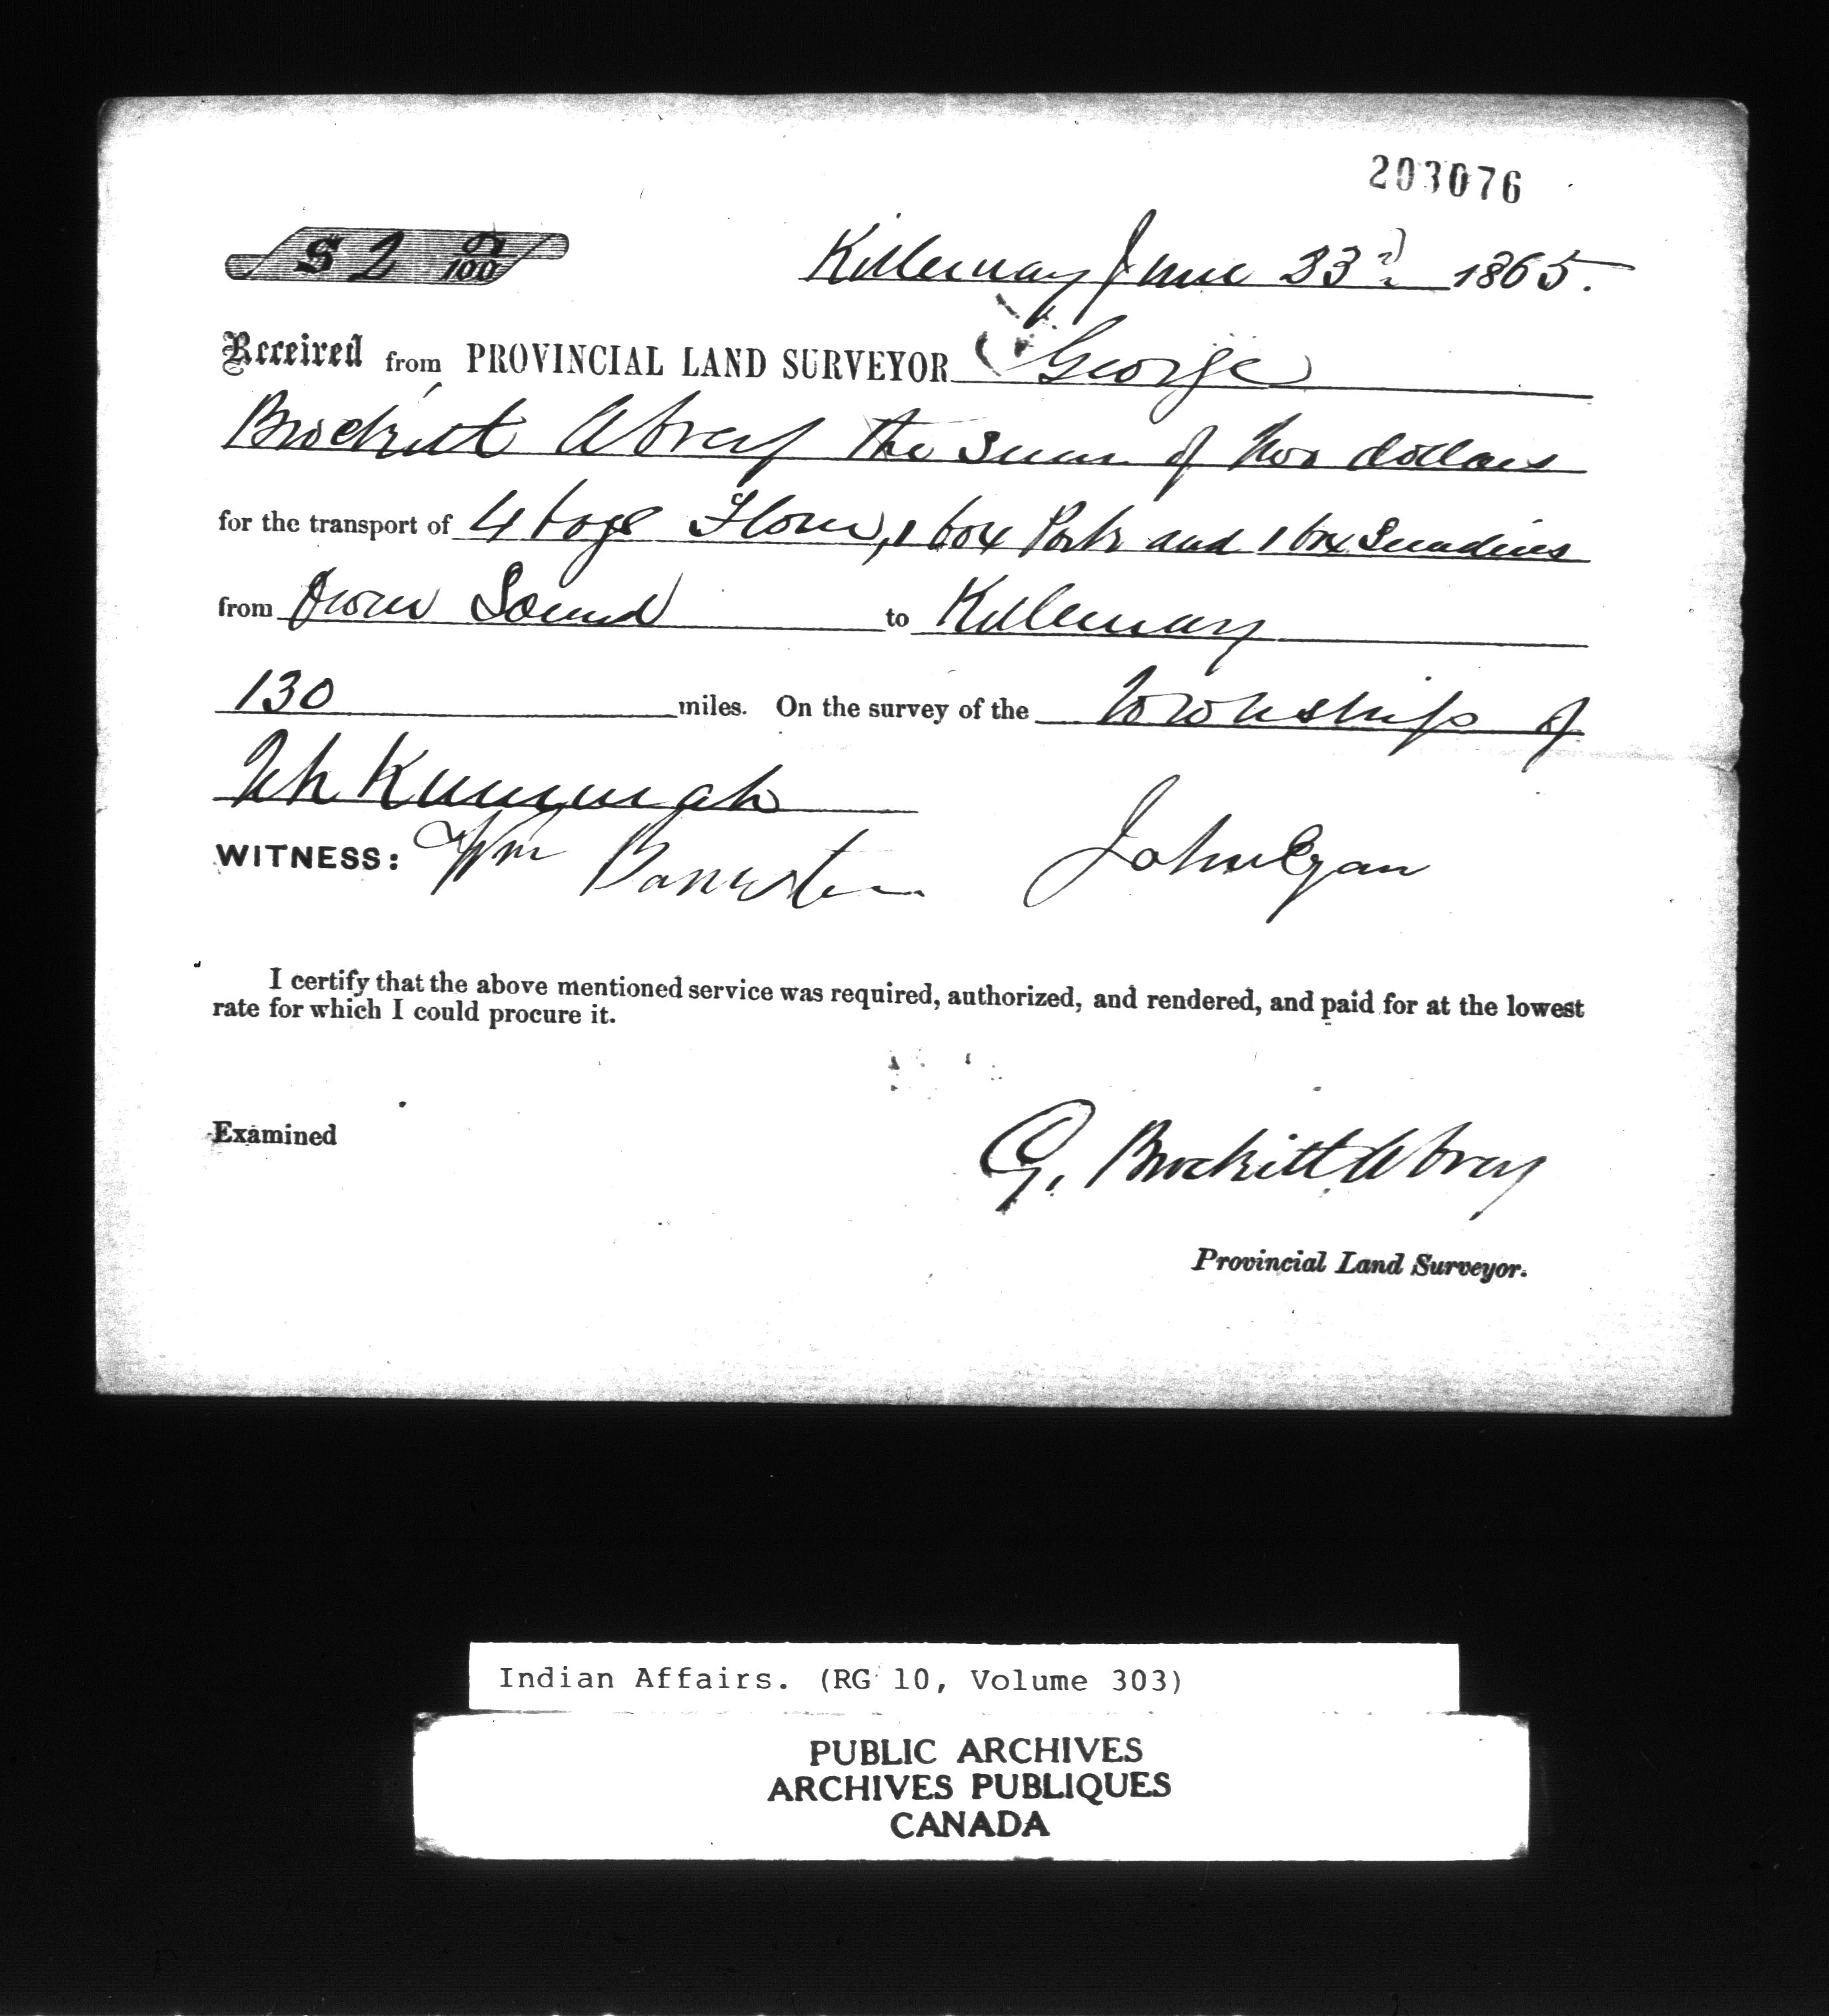 203076
$ 2 0/100 Killarney June 23rd 1865.
Received from PROVINCIAL LAND SURVEYOR George
Brockitt Abrey the Sum of two dollars
for the transport of 4 bags Flour, 1 box Pork and 1 box Sundries
from Owen Sound to Killarney
130 miles. On the survey of the townships of
Teh Kummah
WITNESS: Wm Banister John Egan
I certify that the above mentioned service was required, authorized, and rendered, and paid for at the lowest
rate for which I could procure it.
Examined
G. Brockitt Abrey
Provincial Land Surveyor.
Indian Affairs. (RG 10, Volume 303)
PUBLIC ARCHIVES
ARCHIVES PUBLIQUES
CANADA